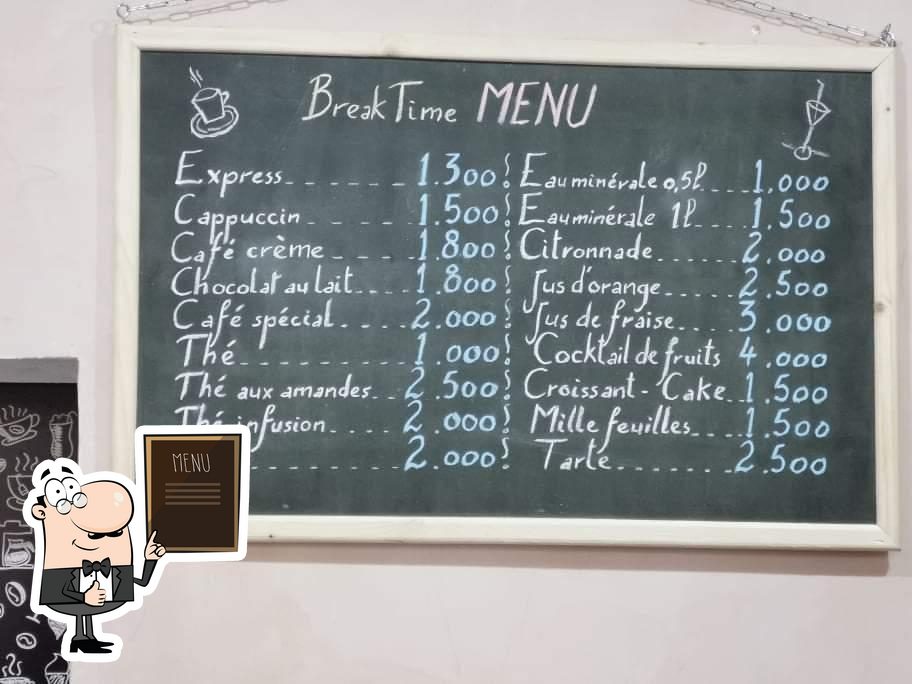 Break Time MENU
Express 1.300
Cappuccin 1.500
Café crème 1.800
Chocolat au lait 1.800
Café spécial 2.000
Thé 1.000
Thé aux amandes 2.500
Thé infusion 2.000
2.000
Eau minérale 0,5l 1.000
Eau minérale 1l 1.500
Citronnade 2.000
Jus d'orange 2.500
Jus de fraise 3.000
Cocktail de fruits 4.000
Croissant - Cake 1.500
Mille feuilles 1.500
Tarte 2.500
MENU